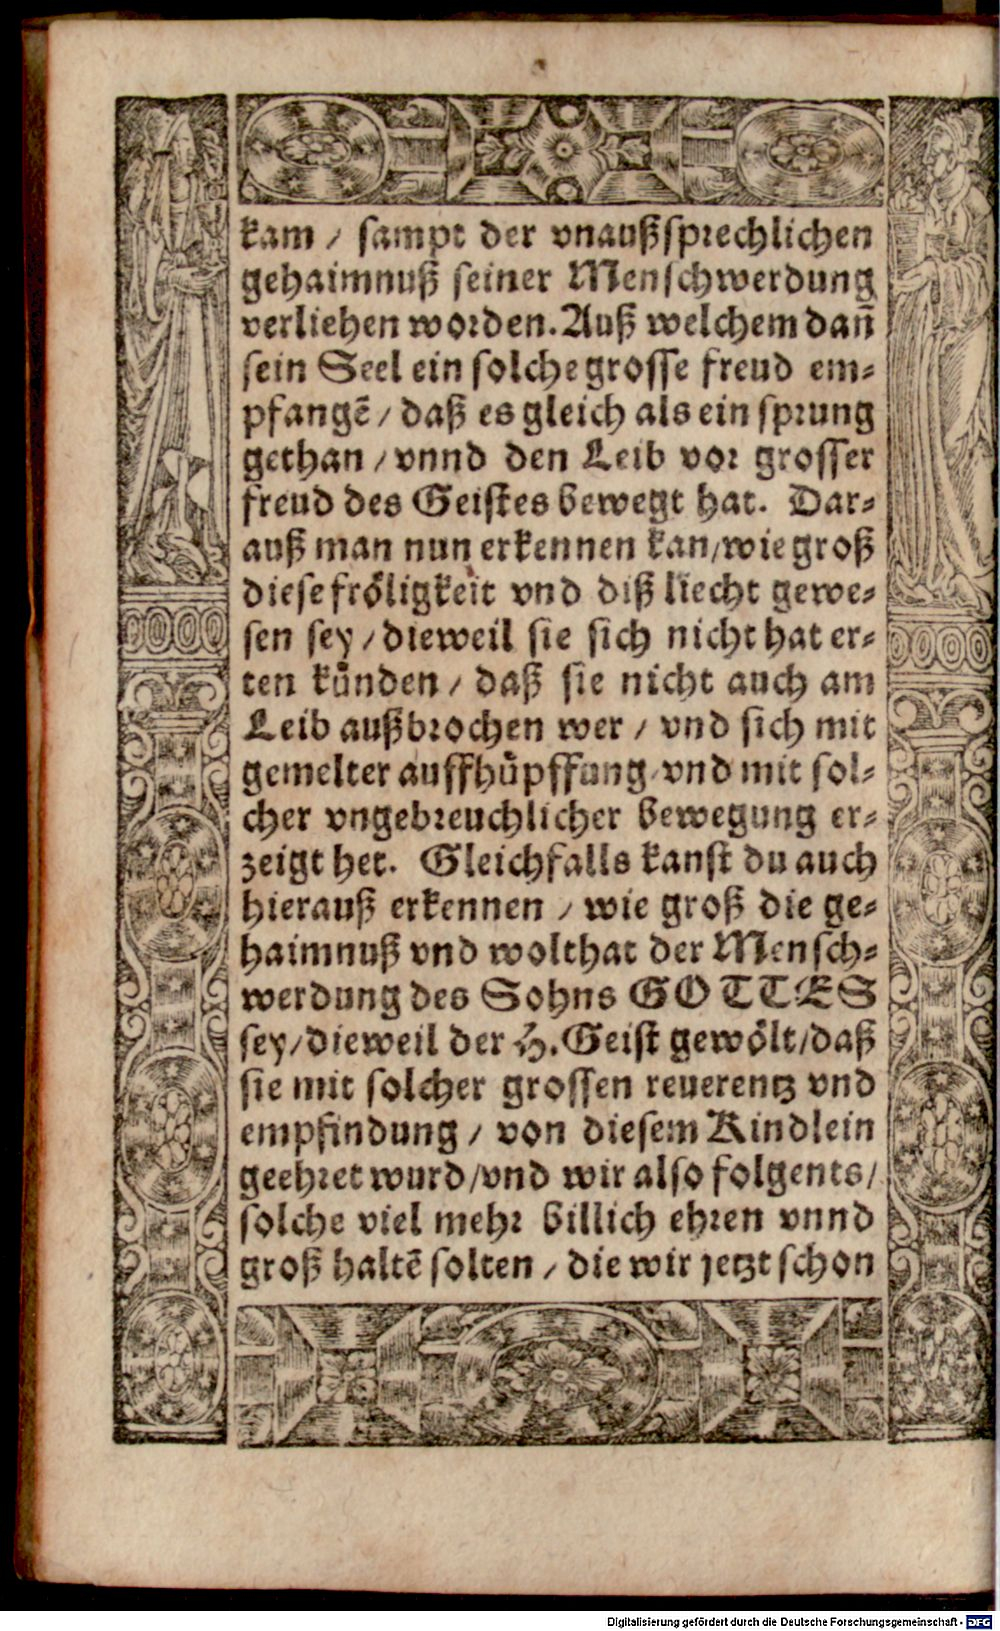 kam / sampt der vnaußsprechlichen
gehaimnuß seiner Menschwerdung
verliehen worden. Auß welchem dañ
sein Seel ein solche grosse freud em⸗
pfangẽ / daß es gleich als ein sprung
gethan / vnnd den Leib vor grosser
freud des Geistes bewegt hat. Dar⸗
auß man nun erkennen kan / wie groß
diese fröligkeit vnd diß liecht gewe⸗
sen sey / dieweil sie sich nicht hat er⸗
ten künden / daß sie nicht auch am
Leib außbrochen wer / vnd sich mit
gemelter auffhüpffung / vnd mit sol⸗
cher vngebreuchlicher bewegung er⸗
zeigt het. Gleichfalls kanst du auch
hierauß erkennen / wie groß die ge⸗
haimnuß vnd wolthat der Mensch⸗
werdung des Sohns GOTTES
sey / dieweil der H. Geist gewölt / daß
sie mit solcher grossen reuerentz vnd
empfindung / von diesem Kindlein
geehret wurd / vnd wir also folgents /
solche viel mehr billich ehren vnnd
groß haltẽ solten / die wir jetzt schon
Digitalisierung gefördert durch die Deutsche Forschungsgemeinschaft - DFG